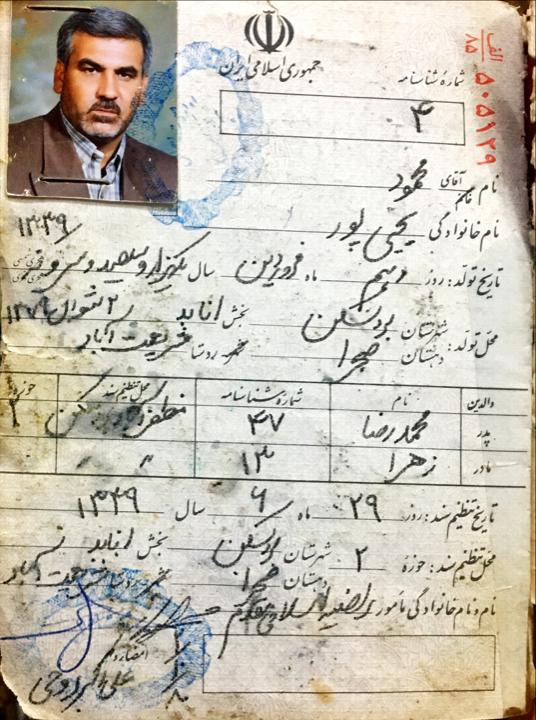 جمهوری اسلامی ایران
الف ۸۵ ۵۰۵۱۲۹
شمارهٔ شناسنامه
۴
نام آقای خانم محمود
نام خانوادگی یحیی پور
۱۳۳۹/
تاریخ تولد: روز دهم ماه فروردین سال یکهزار و سیصد و سی و
۲ شوال ۱۳۷۹
محل تولد: شهرستان بردسکن بخش انابد
دهستان صحرا شهر روستا شریعت آباد
والدین نام شمارهٔ شناسنامه محل تنظیم سند حوزه
پدر محمدرضا ۴۷ ۲
مادر زهرا ۱۳ " "
تاریخ تنظیم سند: روز ۲۹ ماه ۶ سال ۱۳۴۹
محل تنظیم سند: حوزهٔ ۲ شهرستان بردسکن بخش انابد
دهستان صحرا شهر روستا شریعت آباد
نام و نام خانوادگی مأمور
امضاء و مهر
علی اکبر